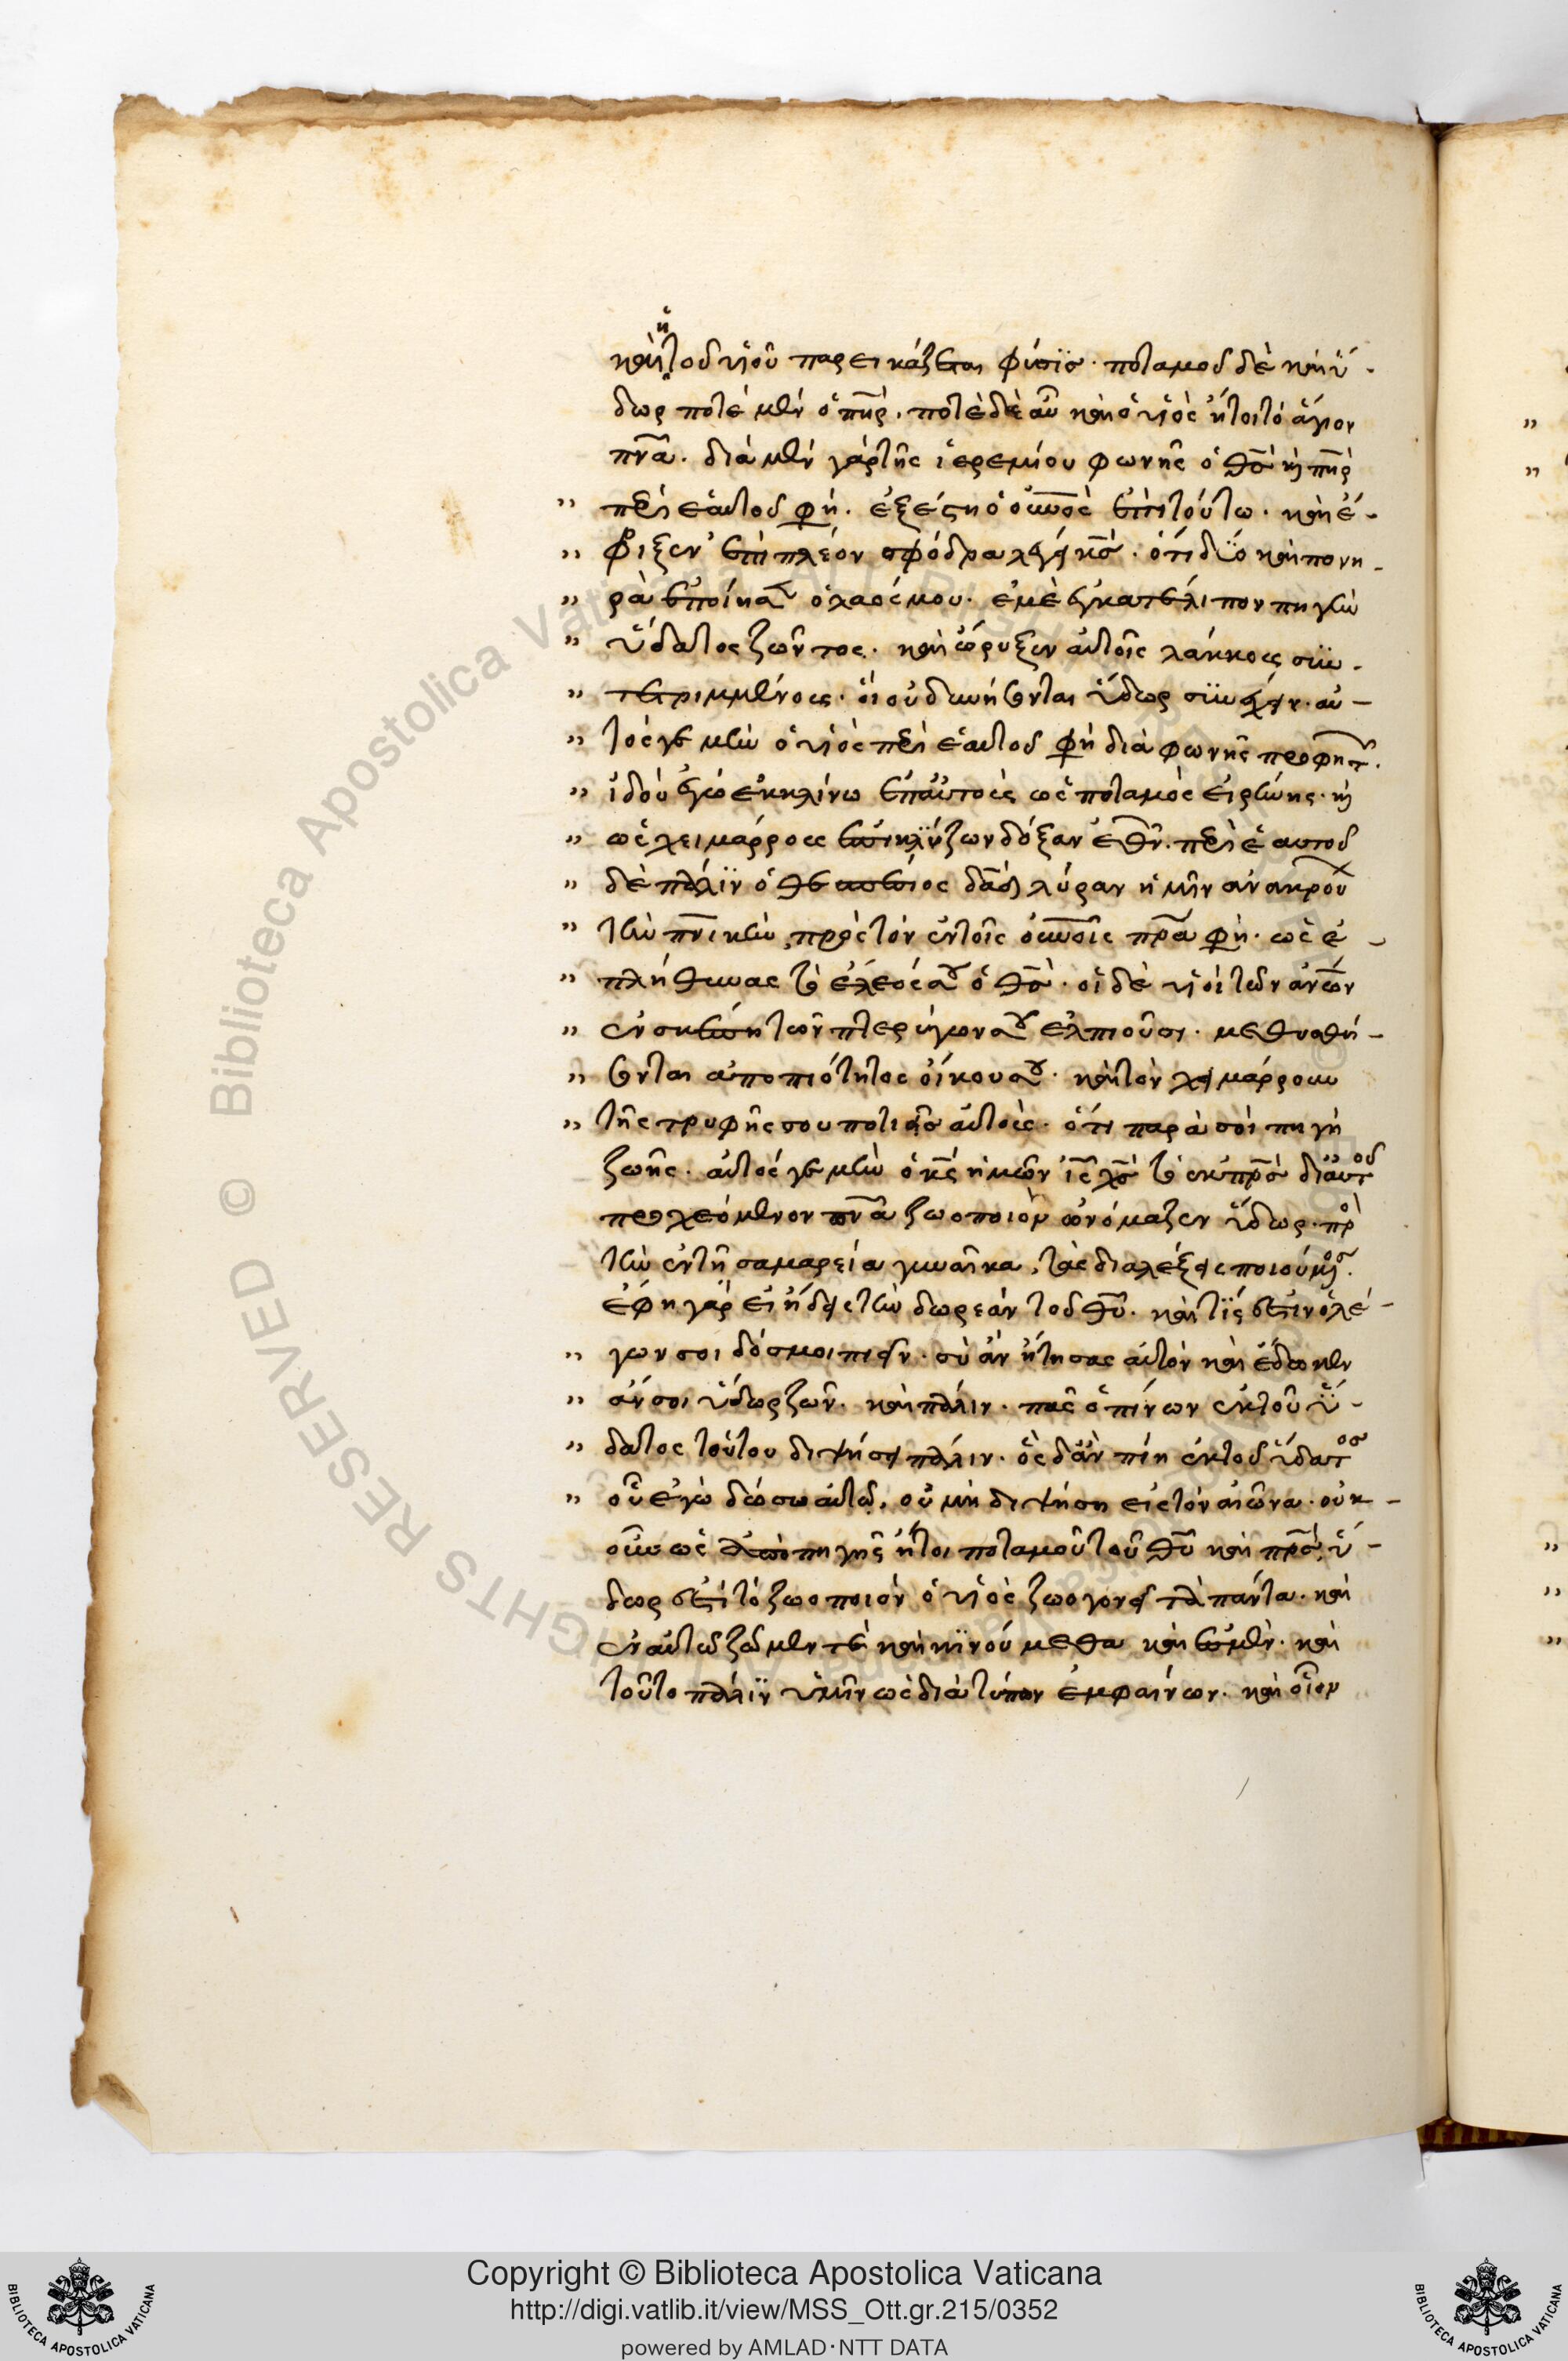 καὶ ἡ τοῦ υἱοῦ παρεικάζεται φύσις· ποταμοῦ δὲ καὶ ὕ-
δωρ ποτὲ μὲν ὁ πῆρ· ποτὲ δὲ αὖ καὶ ὁ υἱὸς ἤτοι τὸ ἅγιον
πνᾶ· διὰ μὲν γὰρ τῆς ἱερεμίου φωνῆς ὁ θς καὶ πῆρ
" περὶ ἑαυτοῦ φη· ἐξέστη ὁ οὐνος ἐπὶ τούτω· καὶ ἔ-
" φριξεν ἐπὶ πλέον σφόδρα λέγει κς· ὅτι δύο καὶ πονη-
" ρὰ ἐποίησεν ὁ λαός μου· ἐμὲ ἐγκατέλιπον πηγὴν
" ὕδατος ζῶντος· καὶ ὤρυξεν αὐτοῖς λάκκους συν-
" τετριμμένους· οἳ οὐ δυνήσονται ὕδωρ συνέχειν· αὐ-
" τός γε μὴν ὁ υἱὸς περὶ ἑαυτοῦ φη διὰ φωνῆς προφητ
" ἰδοὺ ἐγὼ ἐκκλίνω ἐπ' αὐτοὺς ὡς ποταμὸς εἰρήνης· καὶ
" ὡς χειμάρρους ἐπικλύζων δόξαν ἐθν· περὶ ἑαυτοῦ
" δὲ πάλιν ὁ θεσπέσιος δᾶδ λύραν ἡμῖν ἀνακρού
" τὴν πνικὴν πρὸς τὸν ἐν τοῖς οὐνοῖς πρα φη· ὡς ἐ-
" πλήθυνας τὸ ἔλεός σου ὁ θς· οἱ δὲ υἱοὶ τῶν ἀνων
" ἐν σκέπη τῶν πτερύγων σου ἐλπιοῦσι· μεθυσθή-
" σονται ἀπὸ πιότητος οἴκου σου· καὶ τὸν χειμάρρουν
" τῆς τρυφῆς σου ποτιεῖς αὐτούς· ὅτι παρὰ σοὶ πηγὴ
ζωῆς· αὐτός γε μὴν ὁ κς ἡμῶν ις χς τὸ ἐκ πρς δι' αὐτοῦ
προχεόμενον πνα ζωοποιὸν ὠνόμαζεν ὕδωρ· πρὸ
τὴν ἐν τῆ σαμαρεία γυναῖκα, τὰς διαλέξεις ποιούμενος·
ἔφη γὰρ εἰ ἤδεις τὴν δωρεὰν τοῦ θυ· καὶ τίς ἐστιν ὁ λέ-
" γων σοι δός μοι πιεῖν· σὺ ἂν ἤτησας αὐτὸν καὶ ἔδωκεν
" ἄν σοι ὕδωρ ζῶν· καὶ πάλιν· πᾶς ὁ πίνων ἐκ τοῦ ὕ-
" δατος τούτου διψήσει πάλιν· ὃς δ' ἂν πίη ἐκ τοῦ ὕδατος
" οὗ ἐγὼ δώσω αὐτῶ, οὐ μὴ διψήση εἰς τὸν αἰῶνα· οὐκ-
οῦν ὡς ἀπὸ πηγῆς ἤτοι ποταμοῦ τοῦ θυ καὶ πρς, ὕ-
δωρ ἐστὶ τὸ ζωοποιὸν ὁ υἱὸς ζωογονεῖ τὰ πάντα· καὶ
ἐν αὐτῶ ζῶμέν τε καὶ κινούμεθα καὶ ἐσμέν· καὶ
τοῦτο πάλιν ὑμῖν ὡς διὰ τύπων ἐμφαίνων· καὶ οἷον
Copyright © Biblioteca Apostolica Vaticana
http://digi.vatlib.it/view/MSS_Ott.gr.215/0352
powered by AMLAD·NTT DATA